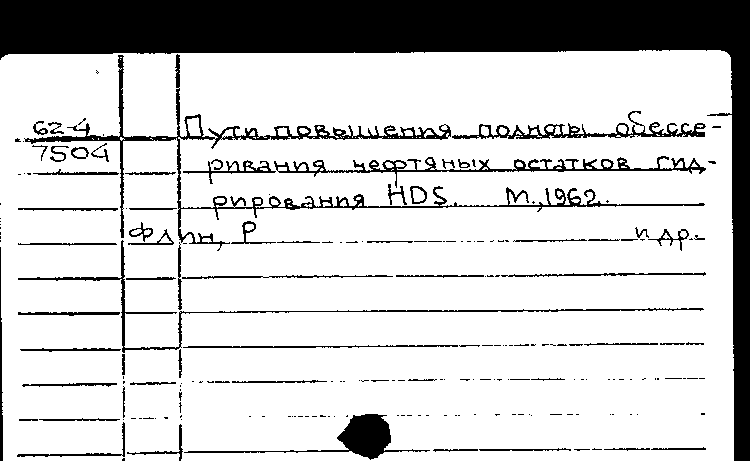 62-4 Пути повышения полноты обессе-
7504 ривания нефтяных остатков гид-
рирования HDS. М.,1962.
Флин, Р и др.